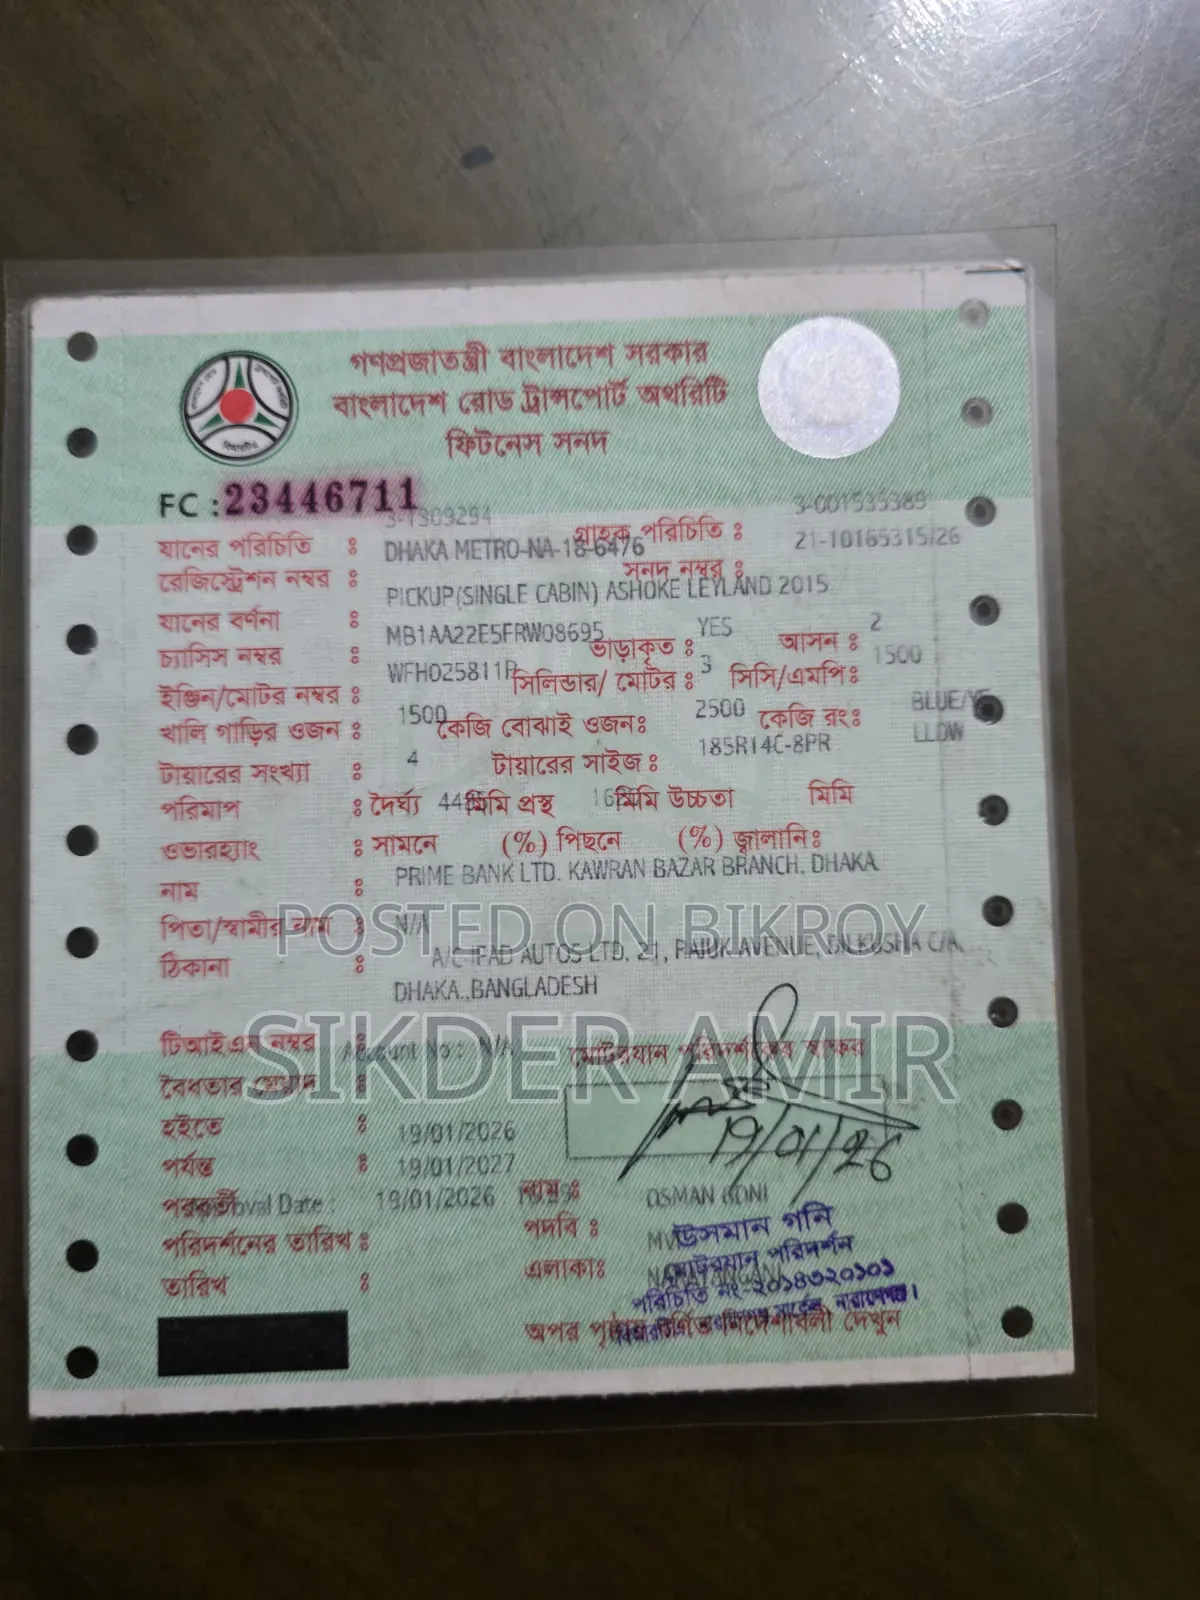 গণপ্রজাতন্ত্রী বাংলাদেশ সরকার
বাংলাদেশ রোড ট্রান্সপোর্ট অথরিটি
ফিটনেস সনদ
FC : 23446711
3-1309294 3-001535389
যানের পরিচিতি : গ্রাহক পরিচিতি :
DHAKA METRO-NA-18-6476 21-10165315/26
রেজিস্ট্রেশন নম্বর : সনদ নম্বর :
PICKUP(SINGLE CABIN) ASHOKE LEYLAND 2015
যানের বর্ণনা :
MB1AA22E5FRW08695 YES 2
চ্যাসিস নম্বর : ভাড়াকৃত : আসন :
WFH025811P 3 1500
ইঞ্জিন/মোটর নম্বর : সিলিন্ডার/ মোটর : সিসি/এমপি:
1500 2500 BLUE/YE
খালি গাড়ির ওজন : কেজি বোঝাই ওজন: কেজি রং: LLOW
4 185R14C-8PR
টায়ারের সংখ্যা : টায়ারের সাইজ :
পরিমাপ : দৈর্ঘ্য মিমি প্রস্থ মিমি উচ্চতা মিমি
ওভারহ্যাং : সামনে (%) পিছনে (%) জ্বালানি:
PRIME BANK LTD. KAWRAN BAZAR BRANCH, DHAKA.
নাম :
পিতা/স্বামীর নাম : N/A
POSTED ON BIKROY
ঠিকানা : A/C-IFAD AUTOS LTD. 21, RAJUK AVENUE, DILKUSHA C/A,
DHAKA.,BANGLADESH
SIKDER AMIR
টিআইএন নম্বর : Account No : N/A মোটরযান পরিদর্শকের স্বাক্ষর
বৈধতার মেয়াদ :
হইতে : 19/01/2026
19/01/26
পর্যন্ত : 19/01/2027
পরবর্তী Date : 19/01/2026 নাম : OSMAN GONI
পরিদর্শনের তারিখ : পদবি : উসমান গনি
তারিখ : এলাকা: মোটরযান পরিদর্শন
পরিচিতি নং-২০১৪৩২০১০১
অপর পৃষ্ঠায় বর্ণিত নির্দেশাবলী দেখুন